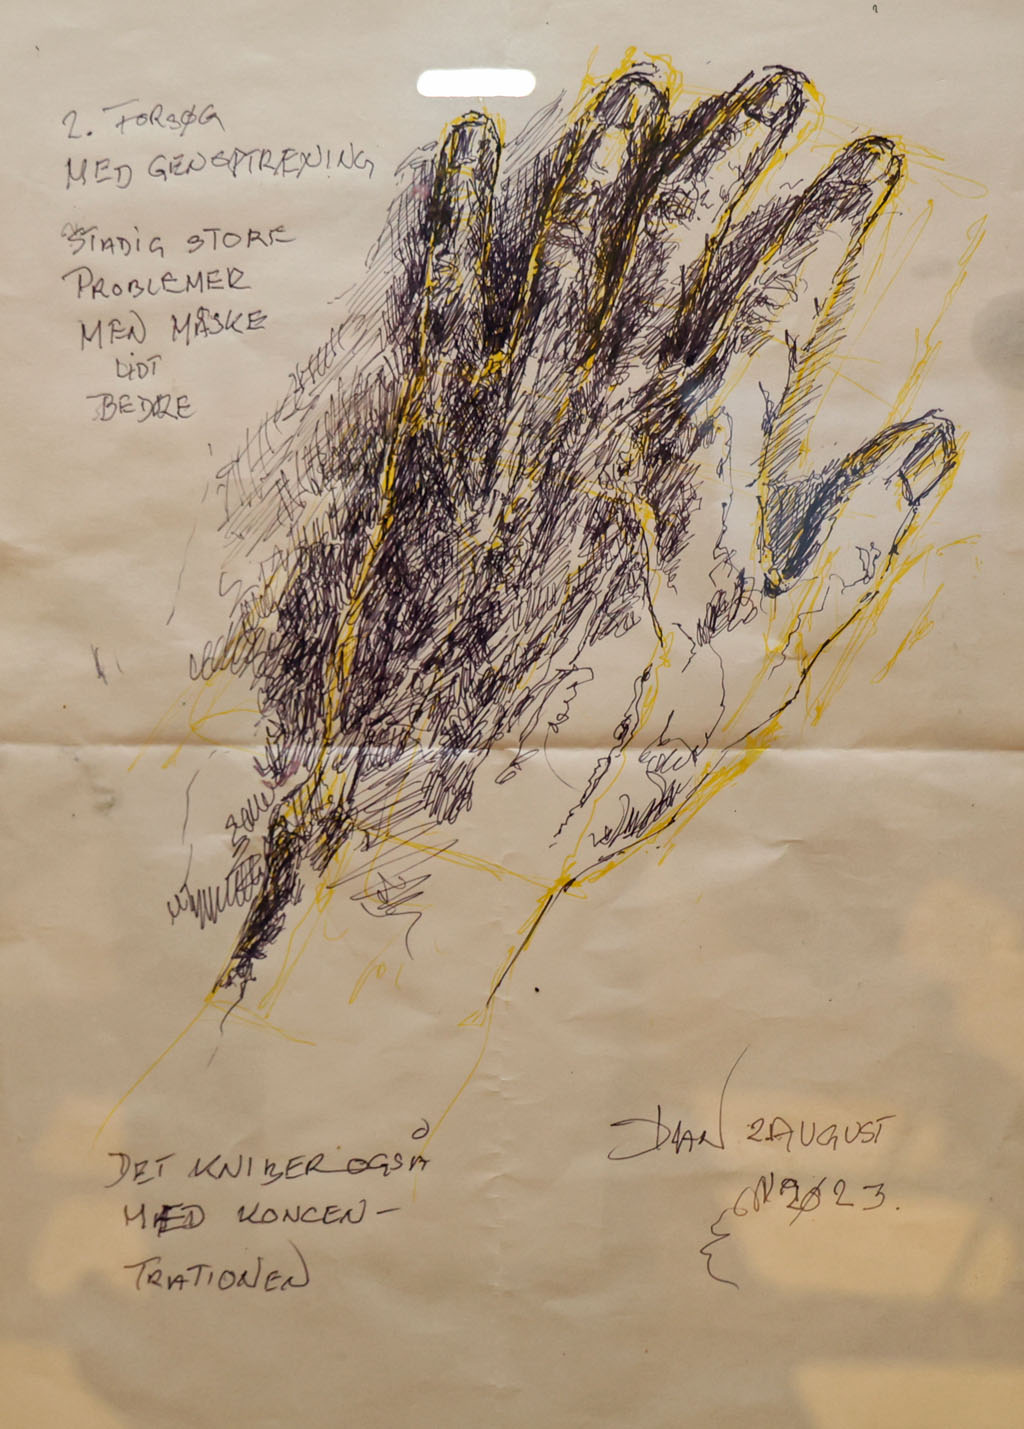 2. FORSØG
MED GENOPTRÆNING
STADIG STORE
PROBLEMER
MEN MÅSKE
LIDT
BEDRE
DET KNIBER OGSÅ
MED KONCEN-
TRATIONEN
2 AUGUST
2023.